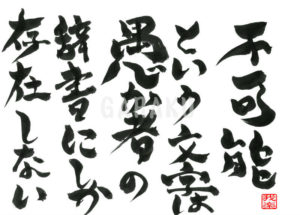 不可能
という文字は
愚か者の
辞書にしか
存在しない
GAHAKU